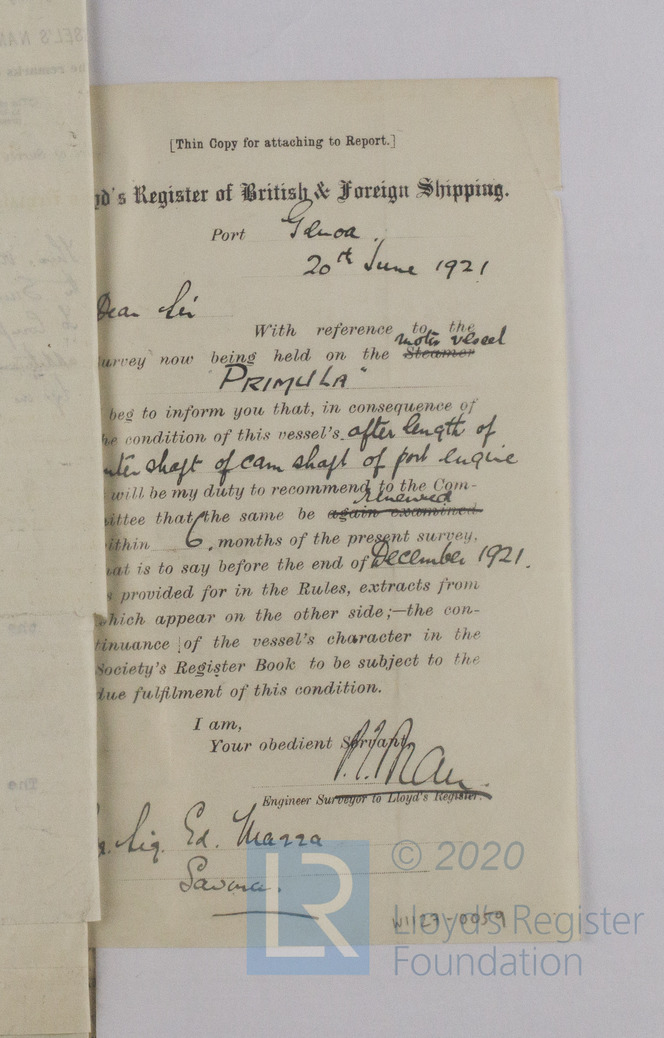 [Thin Copy for attaching to Report.]
yd's Register of British & Foreign Shipping.
Port Genoa.
20th June 1921
Dear Sir
With reference to the
motor vessel
survey now being held on the Steamer
"PRIMULA"
beg to inform you that, in consequence of
he condition of this vessel's after length of
nter shaft of cam shaft of port engine
will be my duty to recommend to the Com-
renewed
ittee that the same be again examined
ithin 6. months of the present survey,
hat is to say before the end of December 1921.
s provided for in the Rules, extracts from
which appear on the other side;—the con-
tinuance of the vessel's character in the
Society's Register Book to be subject to the
due fulfilment of this condition.
I am,
Your obedient Servant,
Engineer Surveyor to Lloyd's Register.
Sig. Ed. Mazza
Savona.
W1127-0059
LR
© 2020
Lloyd's Register
Foundation